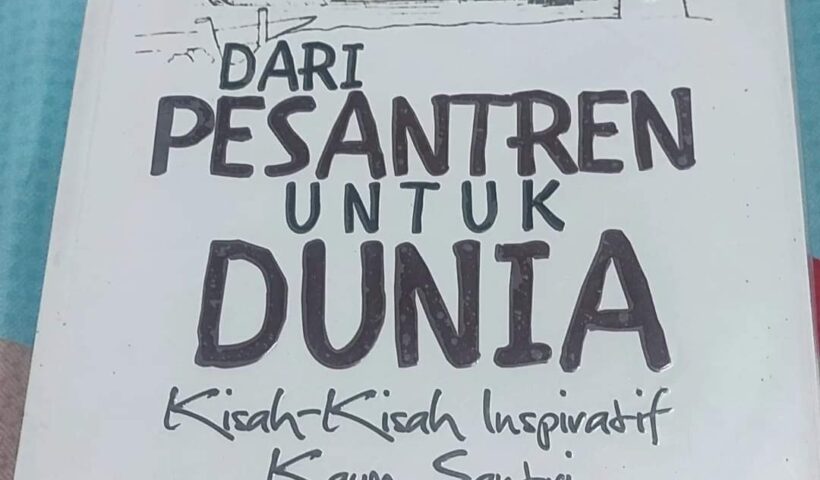 DARI
PESANTREN
UNTUK
DUNIA
Kisah-Kisah Inspiratif
Kaum Santri